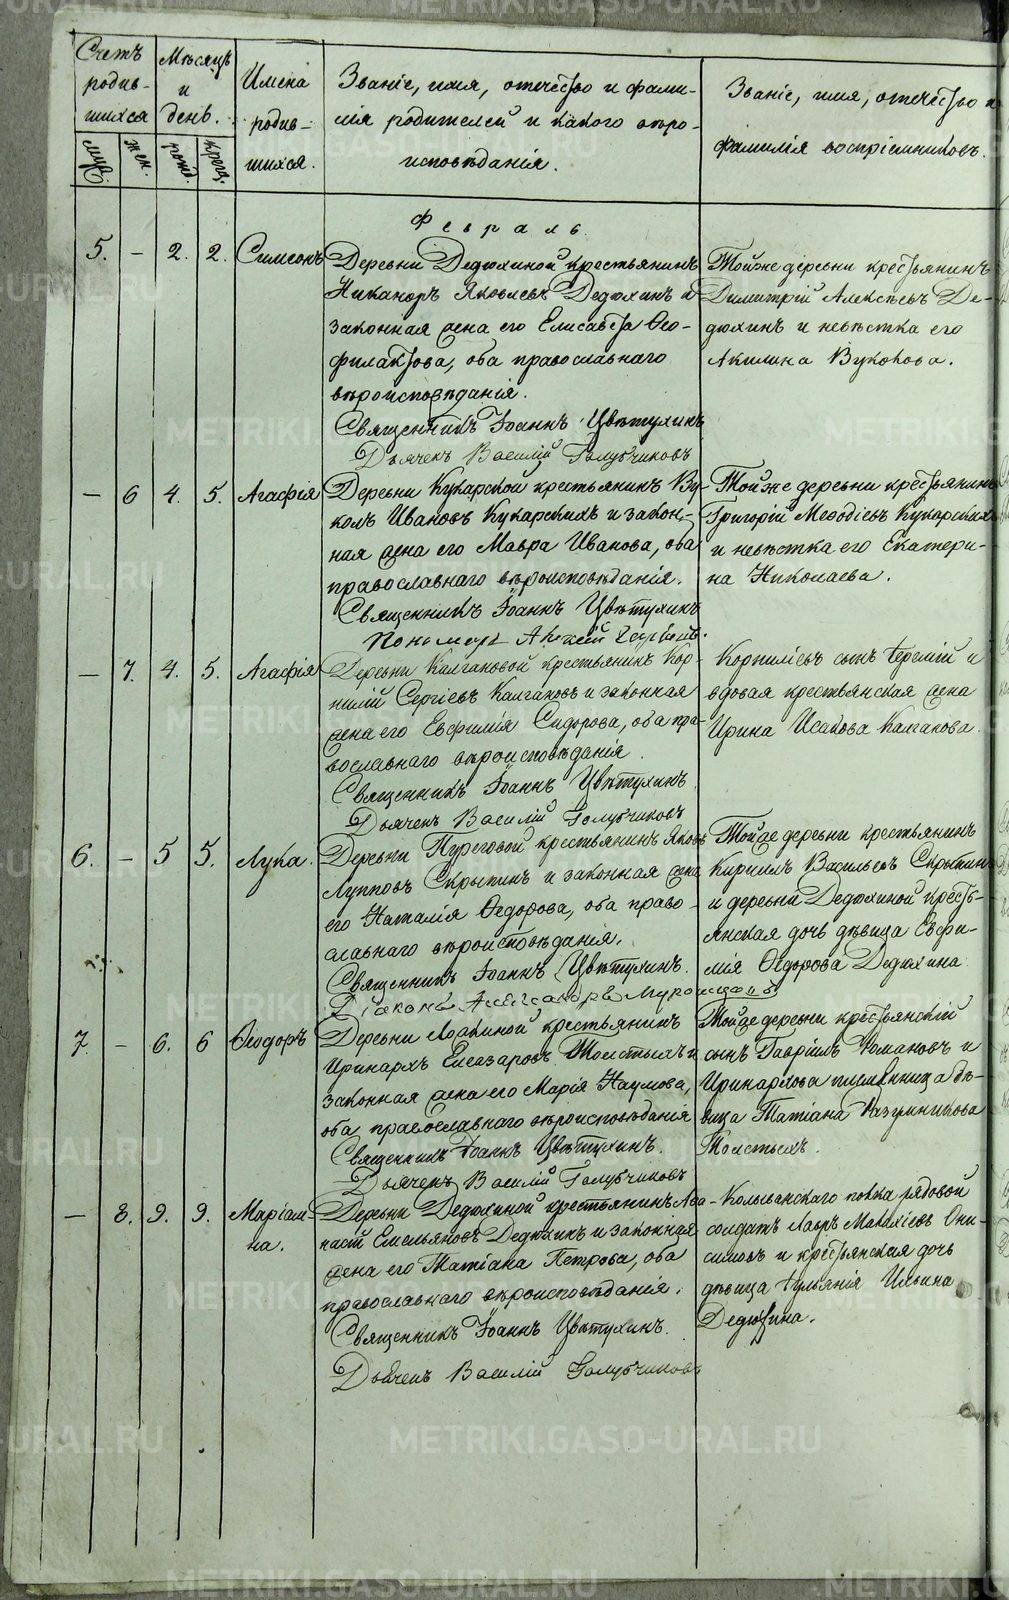 Счетъ родив-шихся
Мѣсяцъ и день.
Имена родив-шихся.
Званіе, имя, отечество и фами-
лія родителей и какого вѣро-
исповѣданія.
Званіе, имя, отечество и
фамилія воспріемниковъ.
муж. жен. рожд. крещ.
Февраль
5. – 2. 2. Симеонъ
Деревни Дедюхиной крестьянинъ
Никаноръ Яковлевъ Дедюхинъ и
законная жена его Елисавета Ѳео-
филактова, оба православнаго
вѣроисповѣданія.
Священникъ Іоаннъ Цвѣтухинъ
Дьячекъ Василій Голубчиковъ
Тойже деревни крестьянинъ
Димитрій Алексѣевъ Де-
дюхинъ и невѣстка его
Акилина Вуколова.
– 6 4. 5. Агафія
Деревни Кукарской крестьянинъ Ву-
колъ Ивановъ Кукарскихъ и закон-
ная жена его Мавра Иванова, оба
православнаго вѣроисповѣданія.
Священникъ Іоаннъ Цвѣтухинъ
Пономарь
Тойже деревни крестьянинъ
Григорій Меѳодіевъ Кукарскихъ
и невѣстка его Екатери-
на Николаева.
– 7. 4. 5. Агафія
Деревни Калгановой крестьянинъ Кор-
нилій Сергіевъ Калгановъ и законная
жена его Евфимія Сидорова, оба пра-
вославнаго вѣроисповѣданія.
Священникъ Іоаннъ Цвѣтухинъ
Дьячекъ Василій Голубчиковъ
Корниліевъ сынъ Іеремій и
вдовая крестьянская жена
Ирина Исакова Калганова.
6. – 5 5. Лука.
Деревни крестьянинъ Яковъ
Лупповъ Скрыпинъ и законная жена
его Наталія Ѳедорова, оба право-
славнаго вѣроисповѣданія.
Священникъ Іоаннъ Цвѣтухинъ.
Діаконъ Александръ
Тойже деревни крестьянинъ
Кириллъ Васильевъ Скрыпинъ
и деревни Дедюхиной кресть-
янская дочь дѣвица Евфи-
мія Ѳедорова Дедюхина
7. – 6. 6 Ѳеодоръ
Деревни крестьянинъ
Иринархъ Елеазаровъ Толстыхъ и
законная жена его Марія Наумова,
оба православнаго вѣроисповѣданія
Священникъ Іоаннъ Цвѣтухинъ.
Дьячекъ Василій Голубчиковъ
Тойже деревни крестьянскій
сынъ Гавріилъ Романовъ и
Иринархова племянница дѣ-
вица Татіана
Толстыхъ.
– 8. 9. 9. Маріам-
на.
Деревни Дедюхиной крестьянинъ Аѳа-
насій Емельяновъ Дедюхинъ и законная
жена его Татіана Петрова, оба
православнаго вѣроисповѣданія.
Священникъ Іоаннъ Цвѣтухинъ.
Дьячекъ Василій Голубчиковъ
Колыванскаго полка рядовой
солдатъ Лавръ Малахіевъ Они-
симовъ и крестьянская дочь
дѣвица Іульянія Ильина
Дедюхина.
METRIKI.GASO-URAL.RU